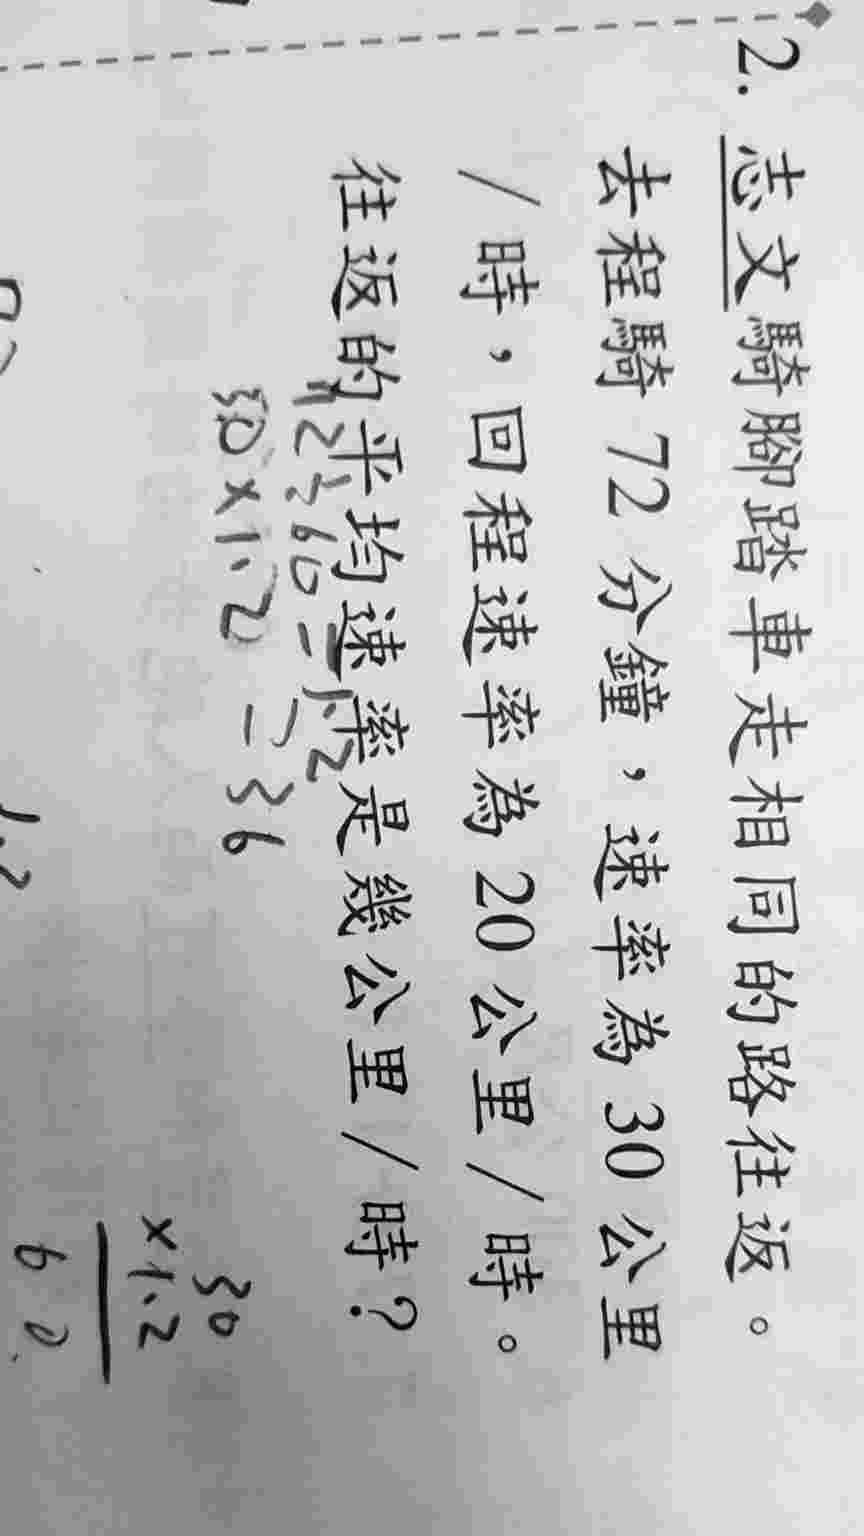 2. 志文騎腳踏車走相同的路往返。
去程騎 72 分鐘，速率為 30 公里
/時，回程速率為 20 公里/時。
往返的平均速率是幾公里/時？
72÷60=1.2
30×1.2=36
30
×1.2
60